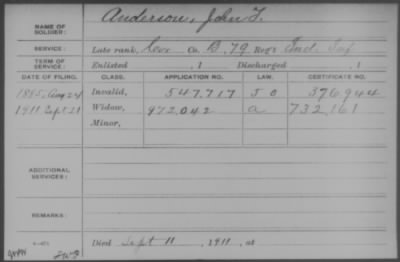 Anderson, John F.
NAME OF SOLDIER:
SERVICE: Late rank, Co. B, 79 Reg't Ind. Inf
TERM OF SERVICE: Enlisted , 1 Discharged , 1
DATE OF FILING. CLASS. APPLICATION NO. LAW. CERTIFICATE NO.
1885, Aug 24 Invalid, 547.717 J O 376.944
1911 Sept 21 Widow, 972.042 a 732,161
Minor,
ADDITIONAL SERVICES:
REMARKS:
Died Sept 11 , 1911, at